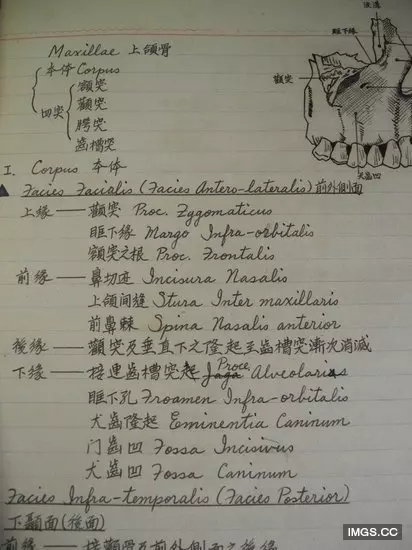 Maxillae 上颌骨
本体 Corpus
四突
额突
颧突
腭突
齒槽突
眶下缘
颧突
犬齒凹
I. Corpus 本体
▲ Facies Facialis (Facies Antero-lateralis) 前外側面
上緣 — 颧突 Proc. Zygomaticus
眶下緣 Margo Infra-orbitalis
額突之根 Proc. Frontalis
前緣 — 鼻切迹 Incisura Nasalis
上頜间縫 Stura Inter maxillaris
前鼻棘 Spina Nasalis anterior
後緣 — 颧突及垂直下之隆起至齒槽突漸次消減
下緣 — 接連齒槽突起 Proce Alveolaris
眶下孔 Froamen Infra-orbitalis
犬齒隆起 Eminentia Caninum
门齒凹 Fossa Incisivus
犬齒凹 Fossa Caninum
Facies Infra-temporalis (Facies Posterior)
下顳面(後面)
前緣 — 接顴骨及前外側面之後緣
IMGS.CC